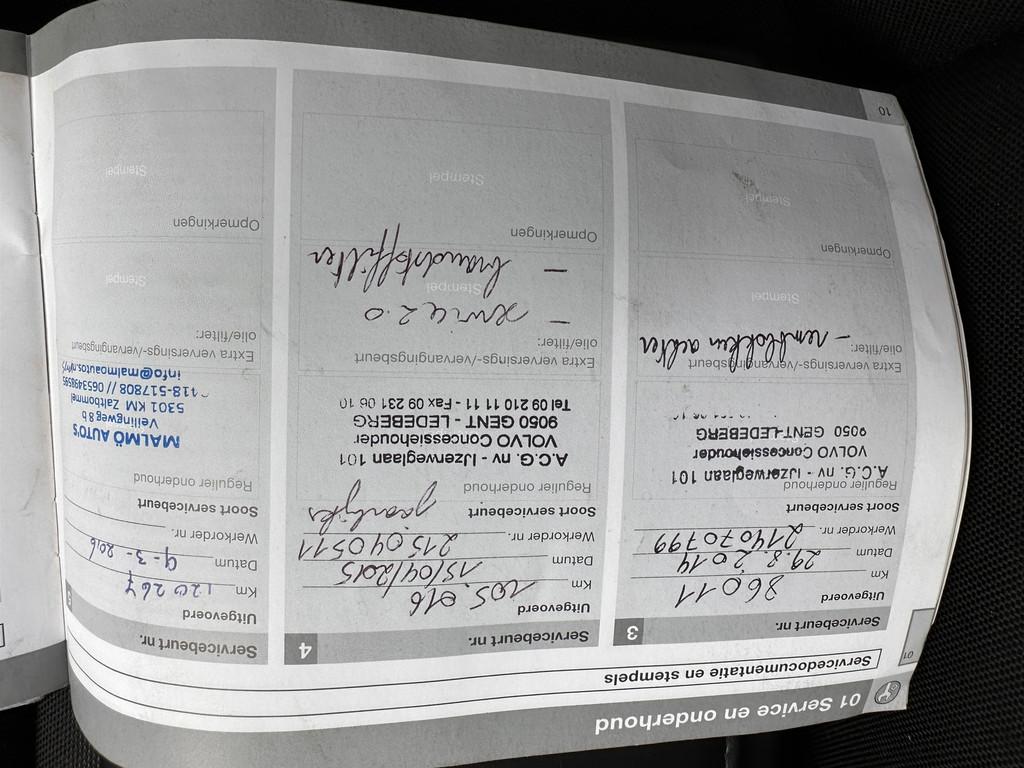 01 Service en onderhoud
Servicedocumentatie en stempels
01
Servicebeurt nr. 3
Uitgevoerd
Km 86011
Datum 29.8.2014
Werkorder nr. 214070799
Soort servicebeurt
Regulier onderhoud
A.C.G. nv - IJzerweglaan 101
VOLVO Concessiehouder
9050 GENT-LEDEBERG
Extra verversings-/vervangingsbeurt
olie/filter:
- remblokken achter
Stempel
Opmerkingen
Stempel
10
Servicebeurt nr. 4
Uitgevoerd
Km 105.016
Datum 15/04/2015
Werkorder nr. 215040511
Soort servicebeurt
Regulier onderhoud
jaarlijks
A.C.G. nv - IJzerweglaan 101
VOLVO Concessiehouder
9050 GENT - LEDEBERG
Tel 09 210 11 11 - Fax 09 231 06 10
Extra verversings-/vervangingsbeurt
olie/filter:
- service 2.0
Stempel
- brandstoffilter
Opmerkingen
Stempel
Servicebeurt nr. 5
Uitgevoerd
Km 120267
Datum 9-3-2016
Werkorder nr.
Soort servicebeurt
Regulier onderhoud
MALMÖ AUTO'S
Veilingweg 8 b
5301 KM Zaltbommel
418-517808 // 0653498595
info@malmoautos.nl
Extra verversings-/vervangingsbeurt
olie/filter:
Stempel
Opmerkingen
Stempel